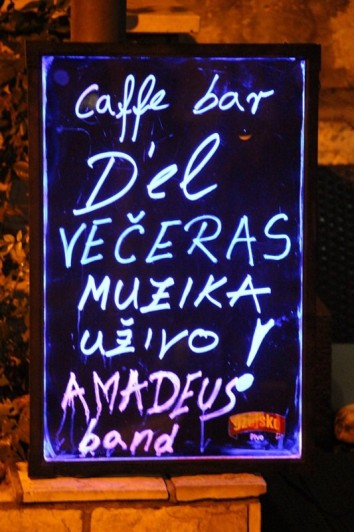 Caffe bar
D'el
VEČERAS
MUZIKA
UŽIVO!
AMADEUS
band
Ožujsko
PIVO